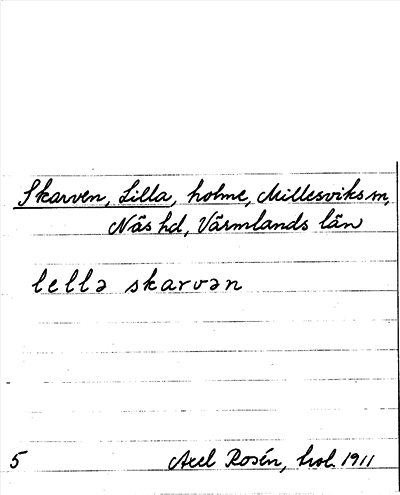 Skarven, Lilla, holme, Millesviks sn,
Näs hd, Värmlands län
lellə skarvən
5 Axel Rosén, hol. 1911